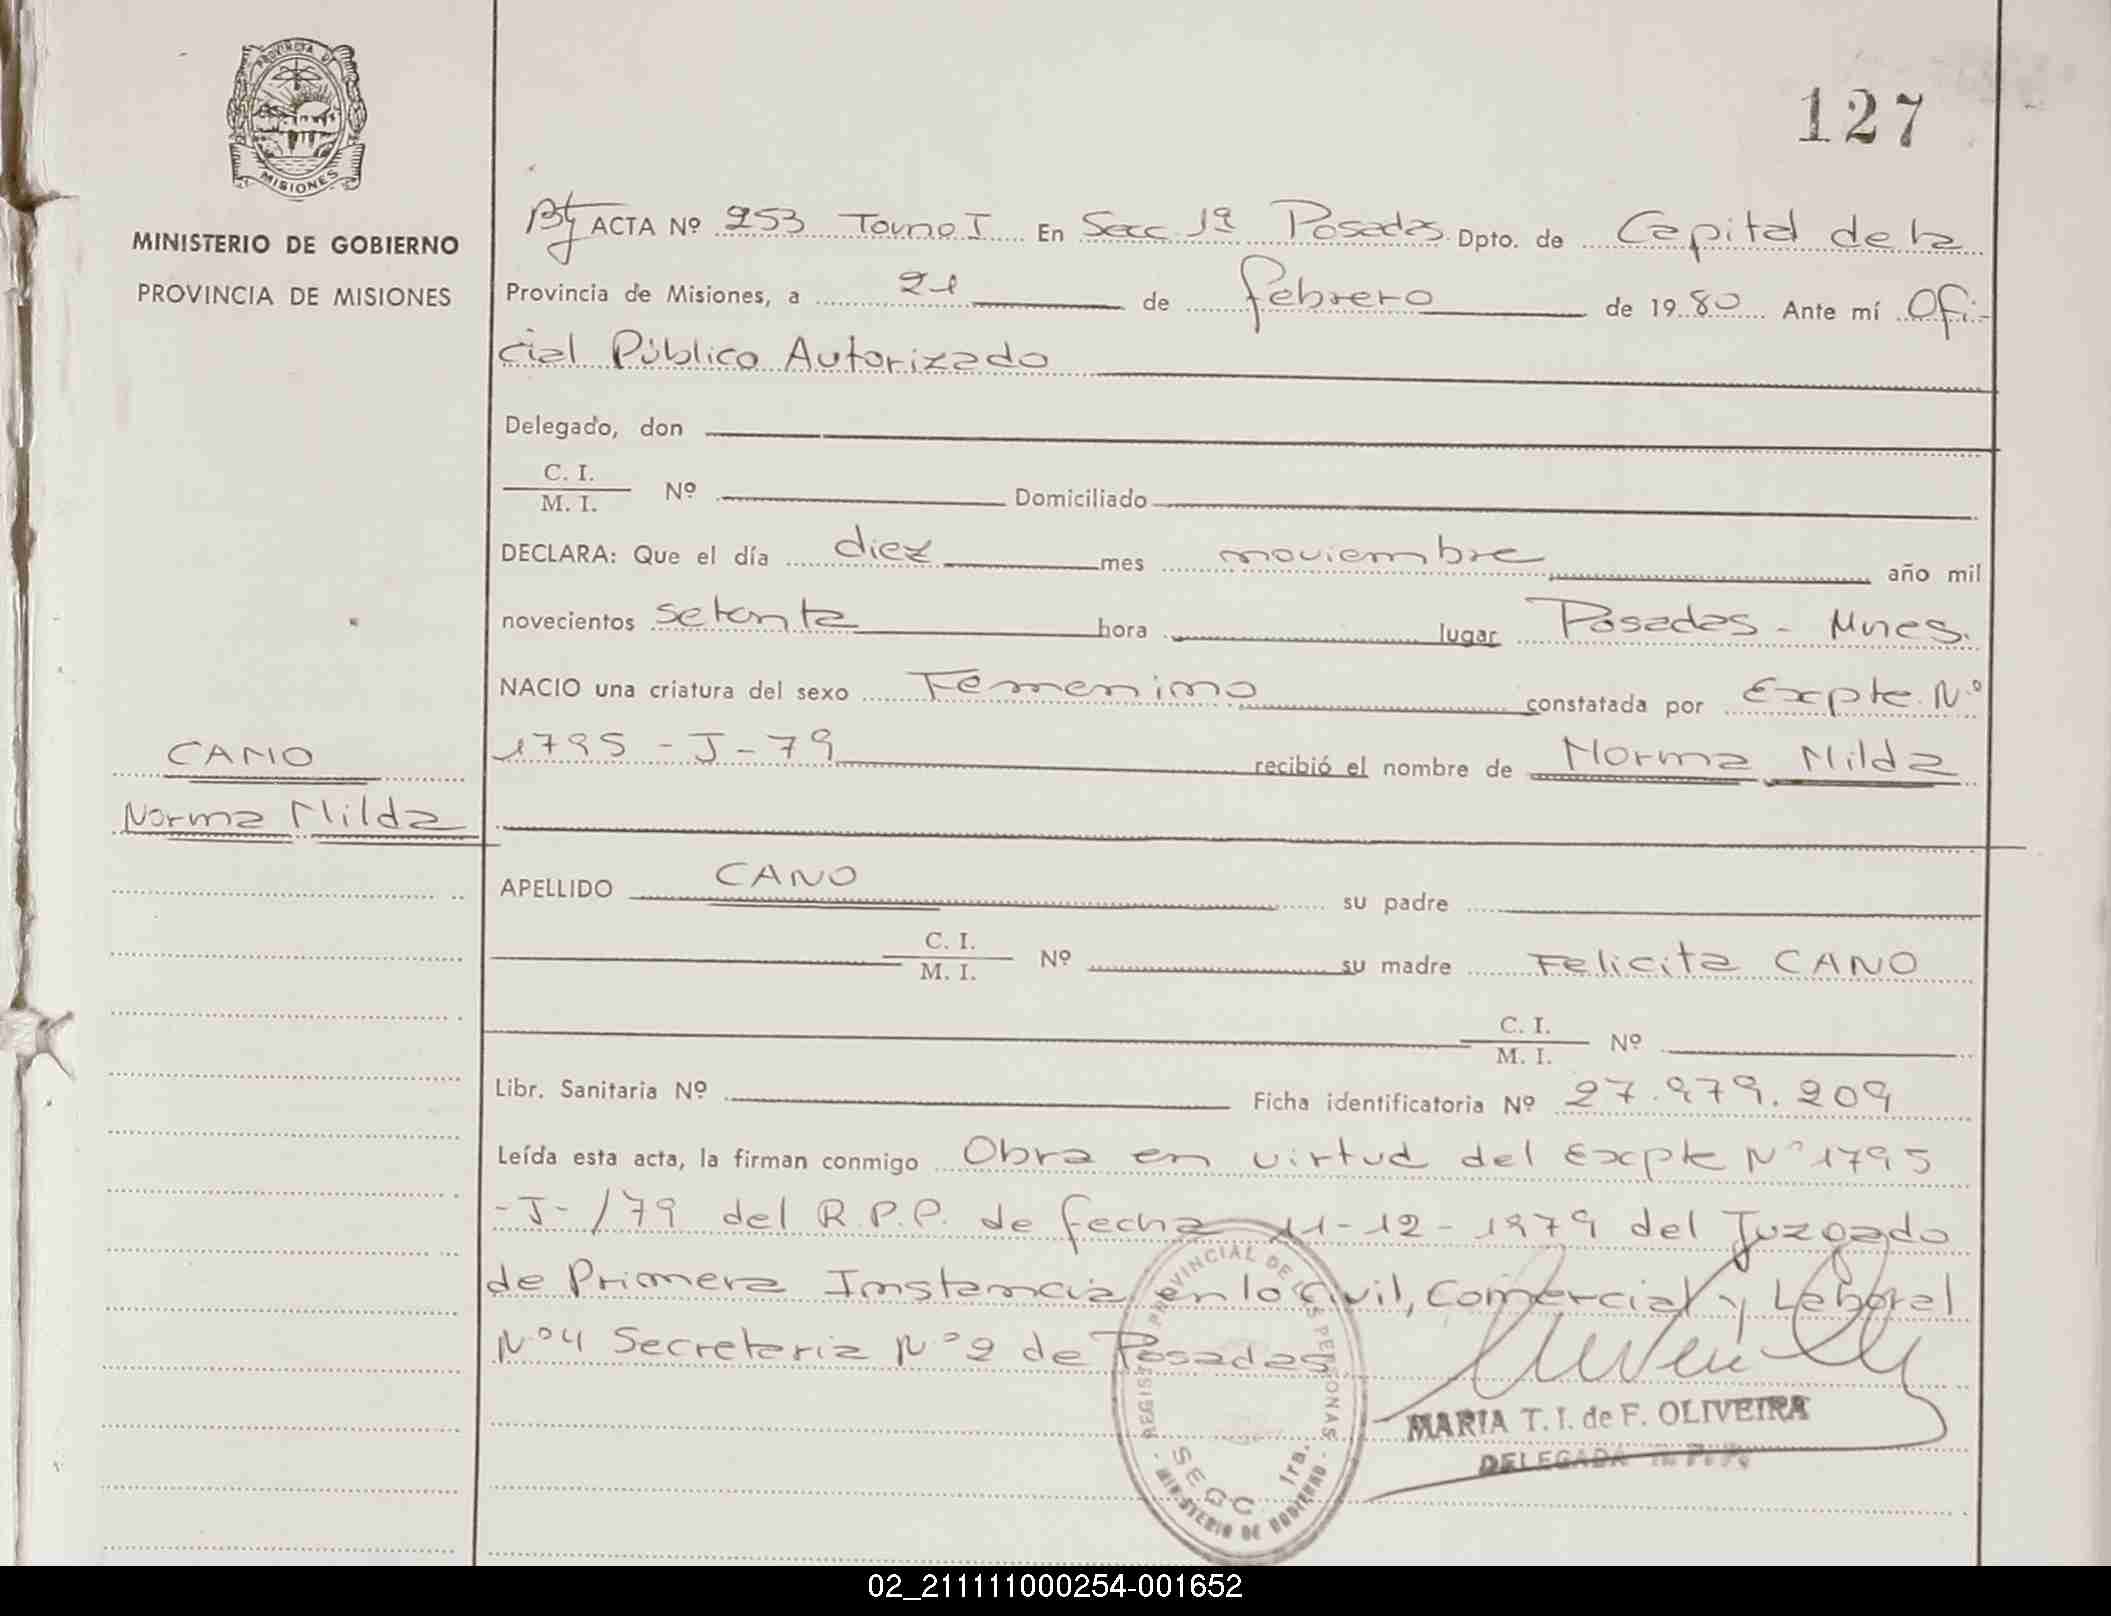 127
PROVINCIA DE
MISIONES
MINISTERIO DE GOBIERNO
PROVINCIA DE MISIONES
ACTA Nº 253 Tomo I En Secc. 1ª Posadas Dpto. de Capital de la
Provincia de Misiones, a 21 de febrero de 1980 Ante mí Ofi-
cial Público Autorizado
Delegado, don
C. I.
M. I. Nº Domiciliado
DECLARA: Que el día diez mes noviembre año mil
novecientos setenta hora lugar Posadas - Mnes.
NACIO una criatura del sexo Femenino constatada por Expte. Nº
1795 - J - 79 recibió el nombre de Norma Nilda
CANO
Norma Nilda
APELLIDO CANO su padre
C. I.
M. I. Nº su madre Felicita CANO
C. I.
M. I. Nº
Libr. Sanitaria Nº Ficha identificatoria Nº 27.979.209
Leída esta acta, la firman conmigo Obra en virtud del Expte Nº 1795
-J-/79 del R.P.P. de fecha 11-12-1979 del Juzgado
de Primera Instancia en lo Civil, Comercial y Laboral
Nº 4 Secretaria Nº 2 de Posadas
REGISTRO PROVINCIAL DE LAS PERSONAS
SECC. 1ra.
MINISTERIO DE GOBIERNO
MARIA T. I. de F. OLIVEIRA
DELEGADA
02_211111000254-001652